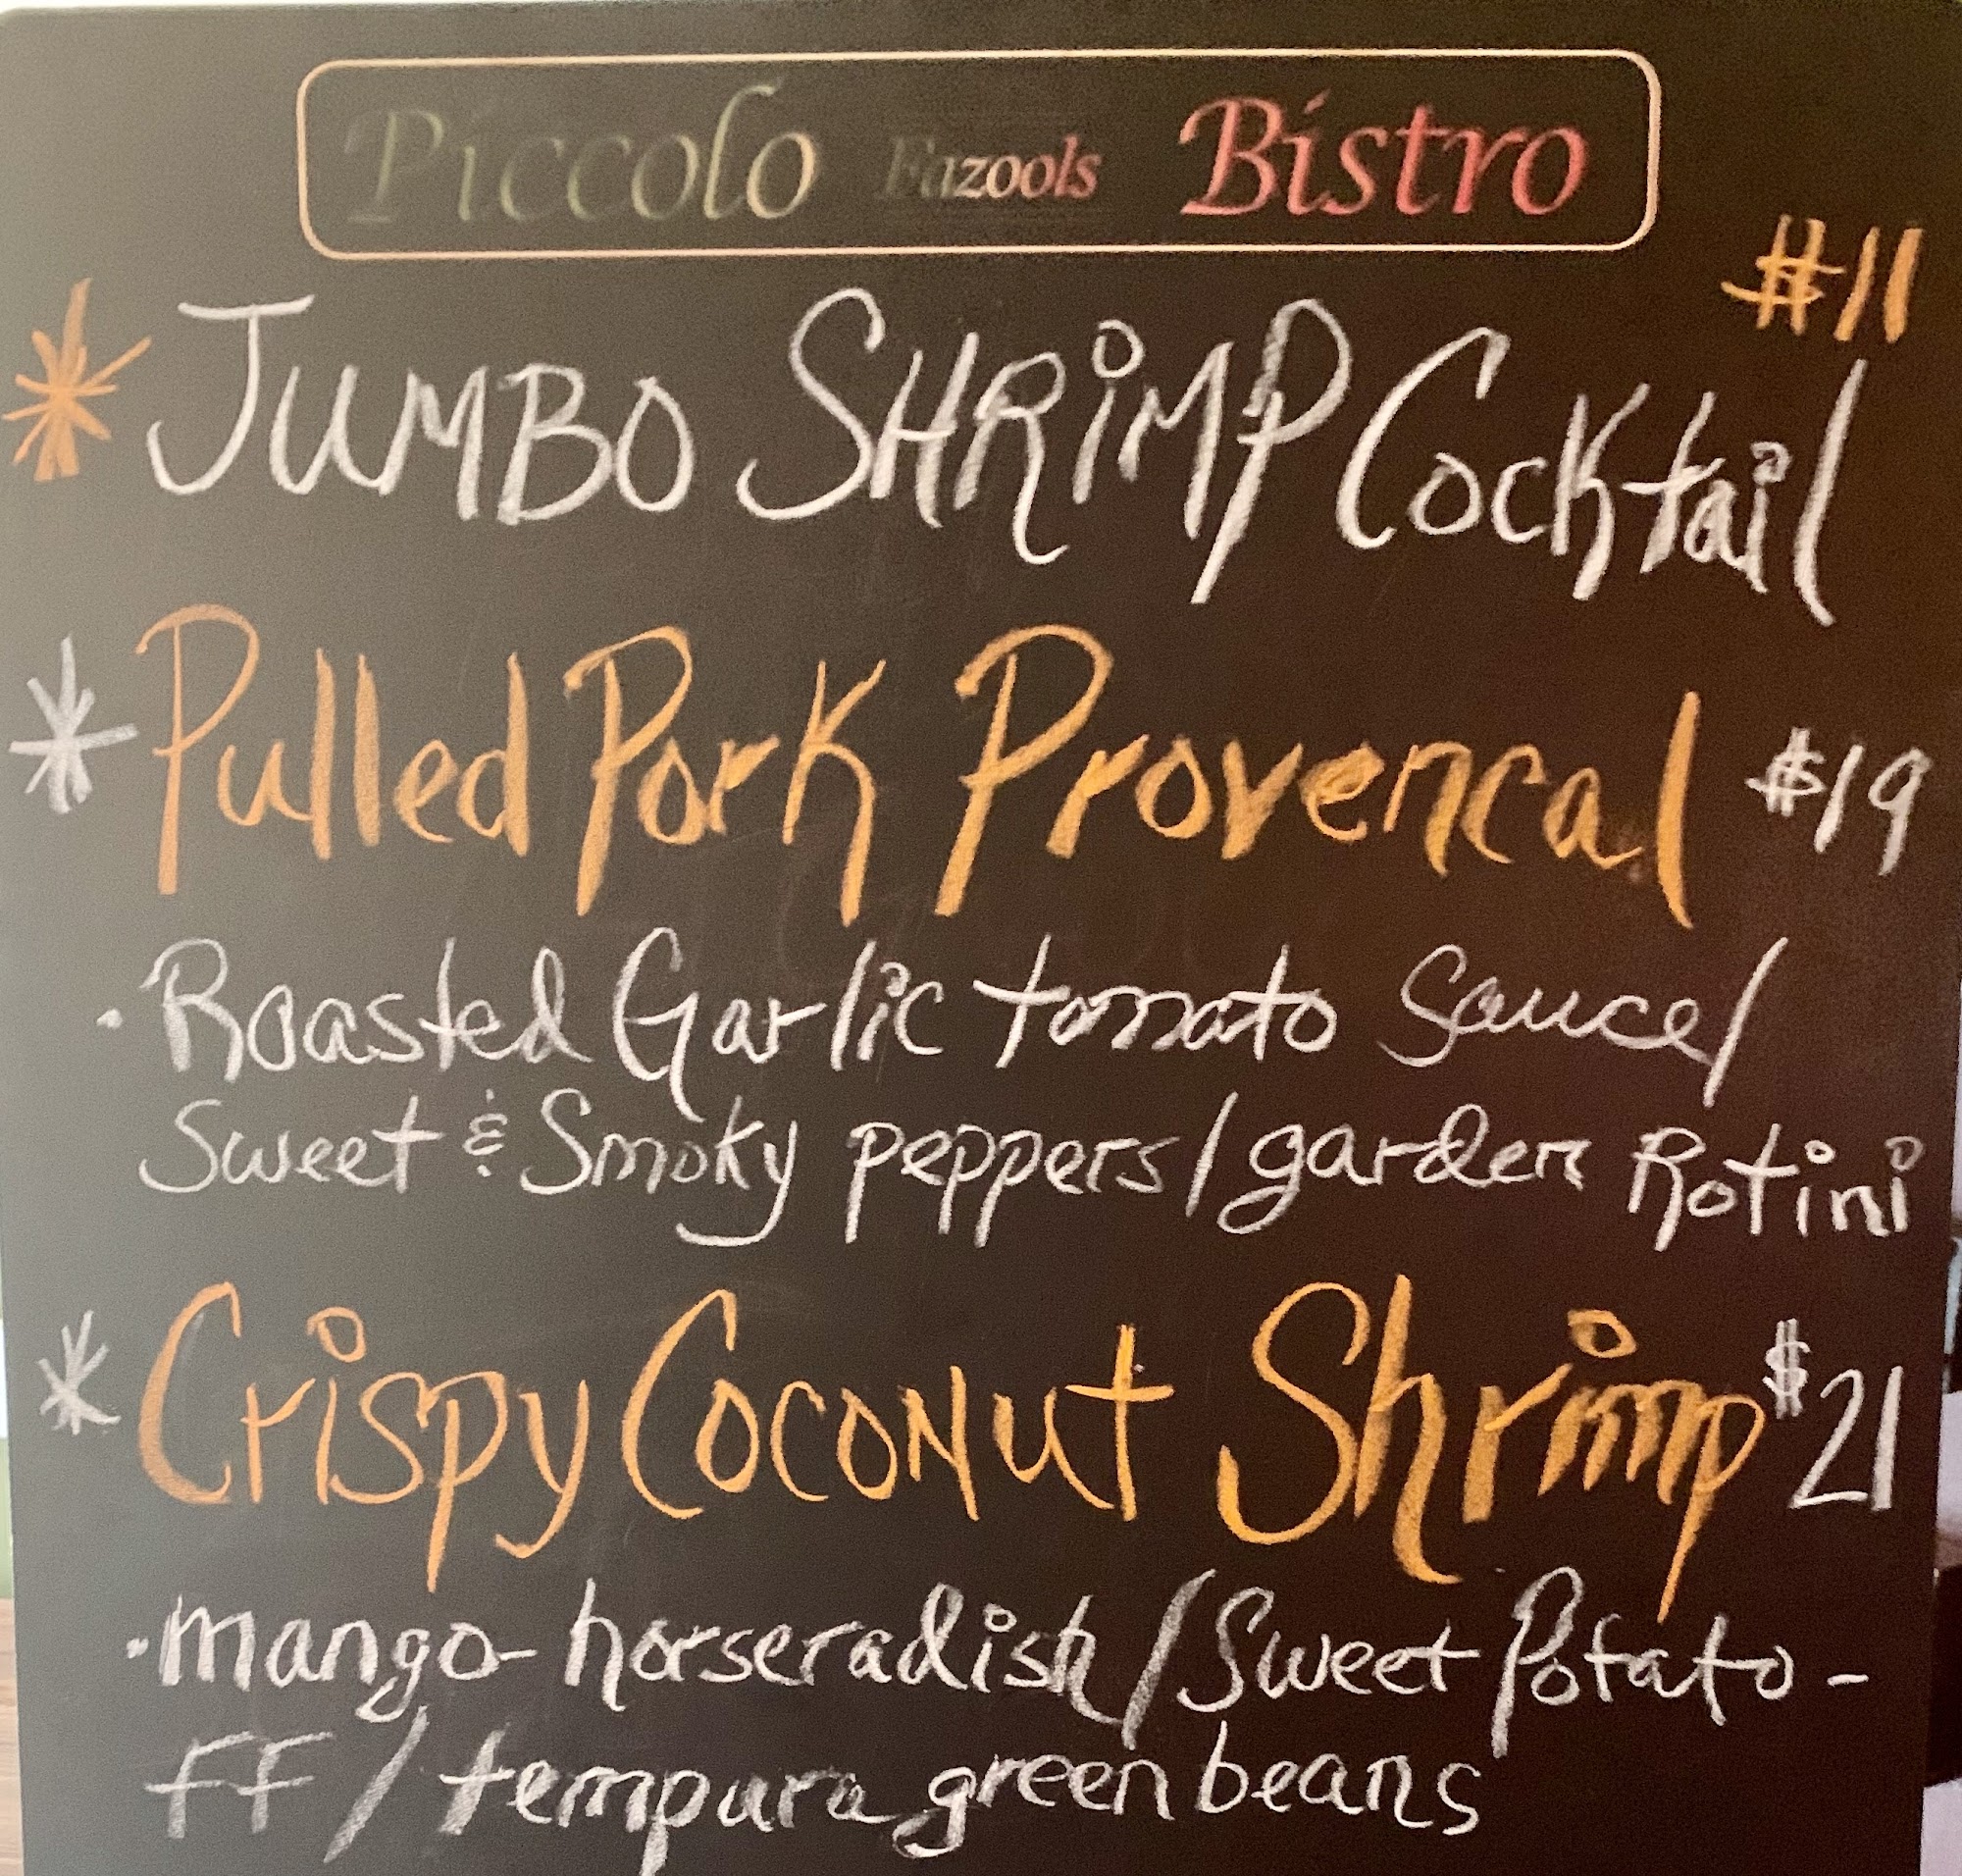 Piccolo Fazools Bistro
$11
* JUMBO SHRiMP Cocktail
* Pulled Pork Provencal $19
· Roasted Garlic tomato Sauce/
Sweet & Smoky peppers/garden Rotini
* Crispy Coconut Shrimp $21
· mango-horseradish/Sweet Potato-
FF/tempura green beans